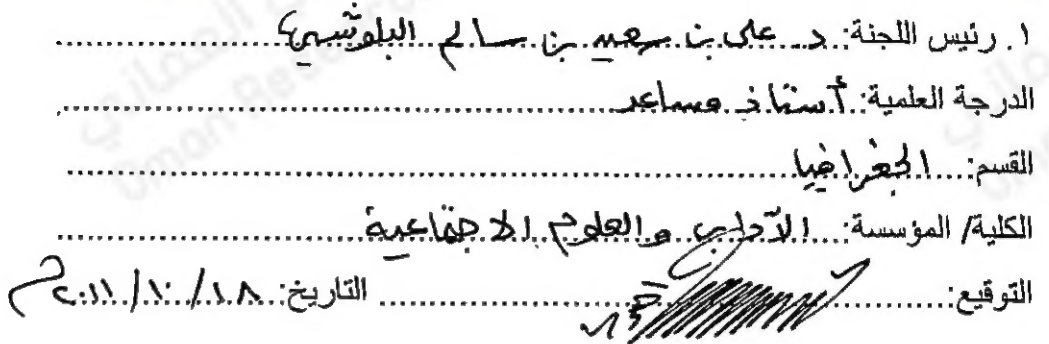 ١. رئيس اللجنة: د. علي بن سعيد بن سالم البلوشي
الدرجة العلمية: أستاذ مساعد
القسم: الجغرافيا
الكلية/ المؤسسة: الآداب والعلوم الاجتماعية
التوقيع: التاريخ: ١٨/١٠/٢٠١١م